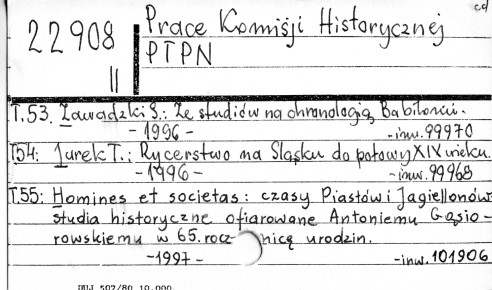 cd
22908 Prace Komisji Historycznej
II PTPN
T.53. Zawadzki S.: Ze studiów na chronologią Babilonii.
- 1996 - -inw. 99970
T54: Jurek T.: Rycerstwo na Śląsku do połowy XIV wieku.
- 1996 - -inw. 99968
T.55: Homines et societas: czasy Piastów i Jagiellonów
studia historyczne ofiarowane Antoniemu Gąsio-
rowskiemu w 65. rocznicę urodzin.
-1997 - -inw. 101906
DUJ 502/80 10.000